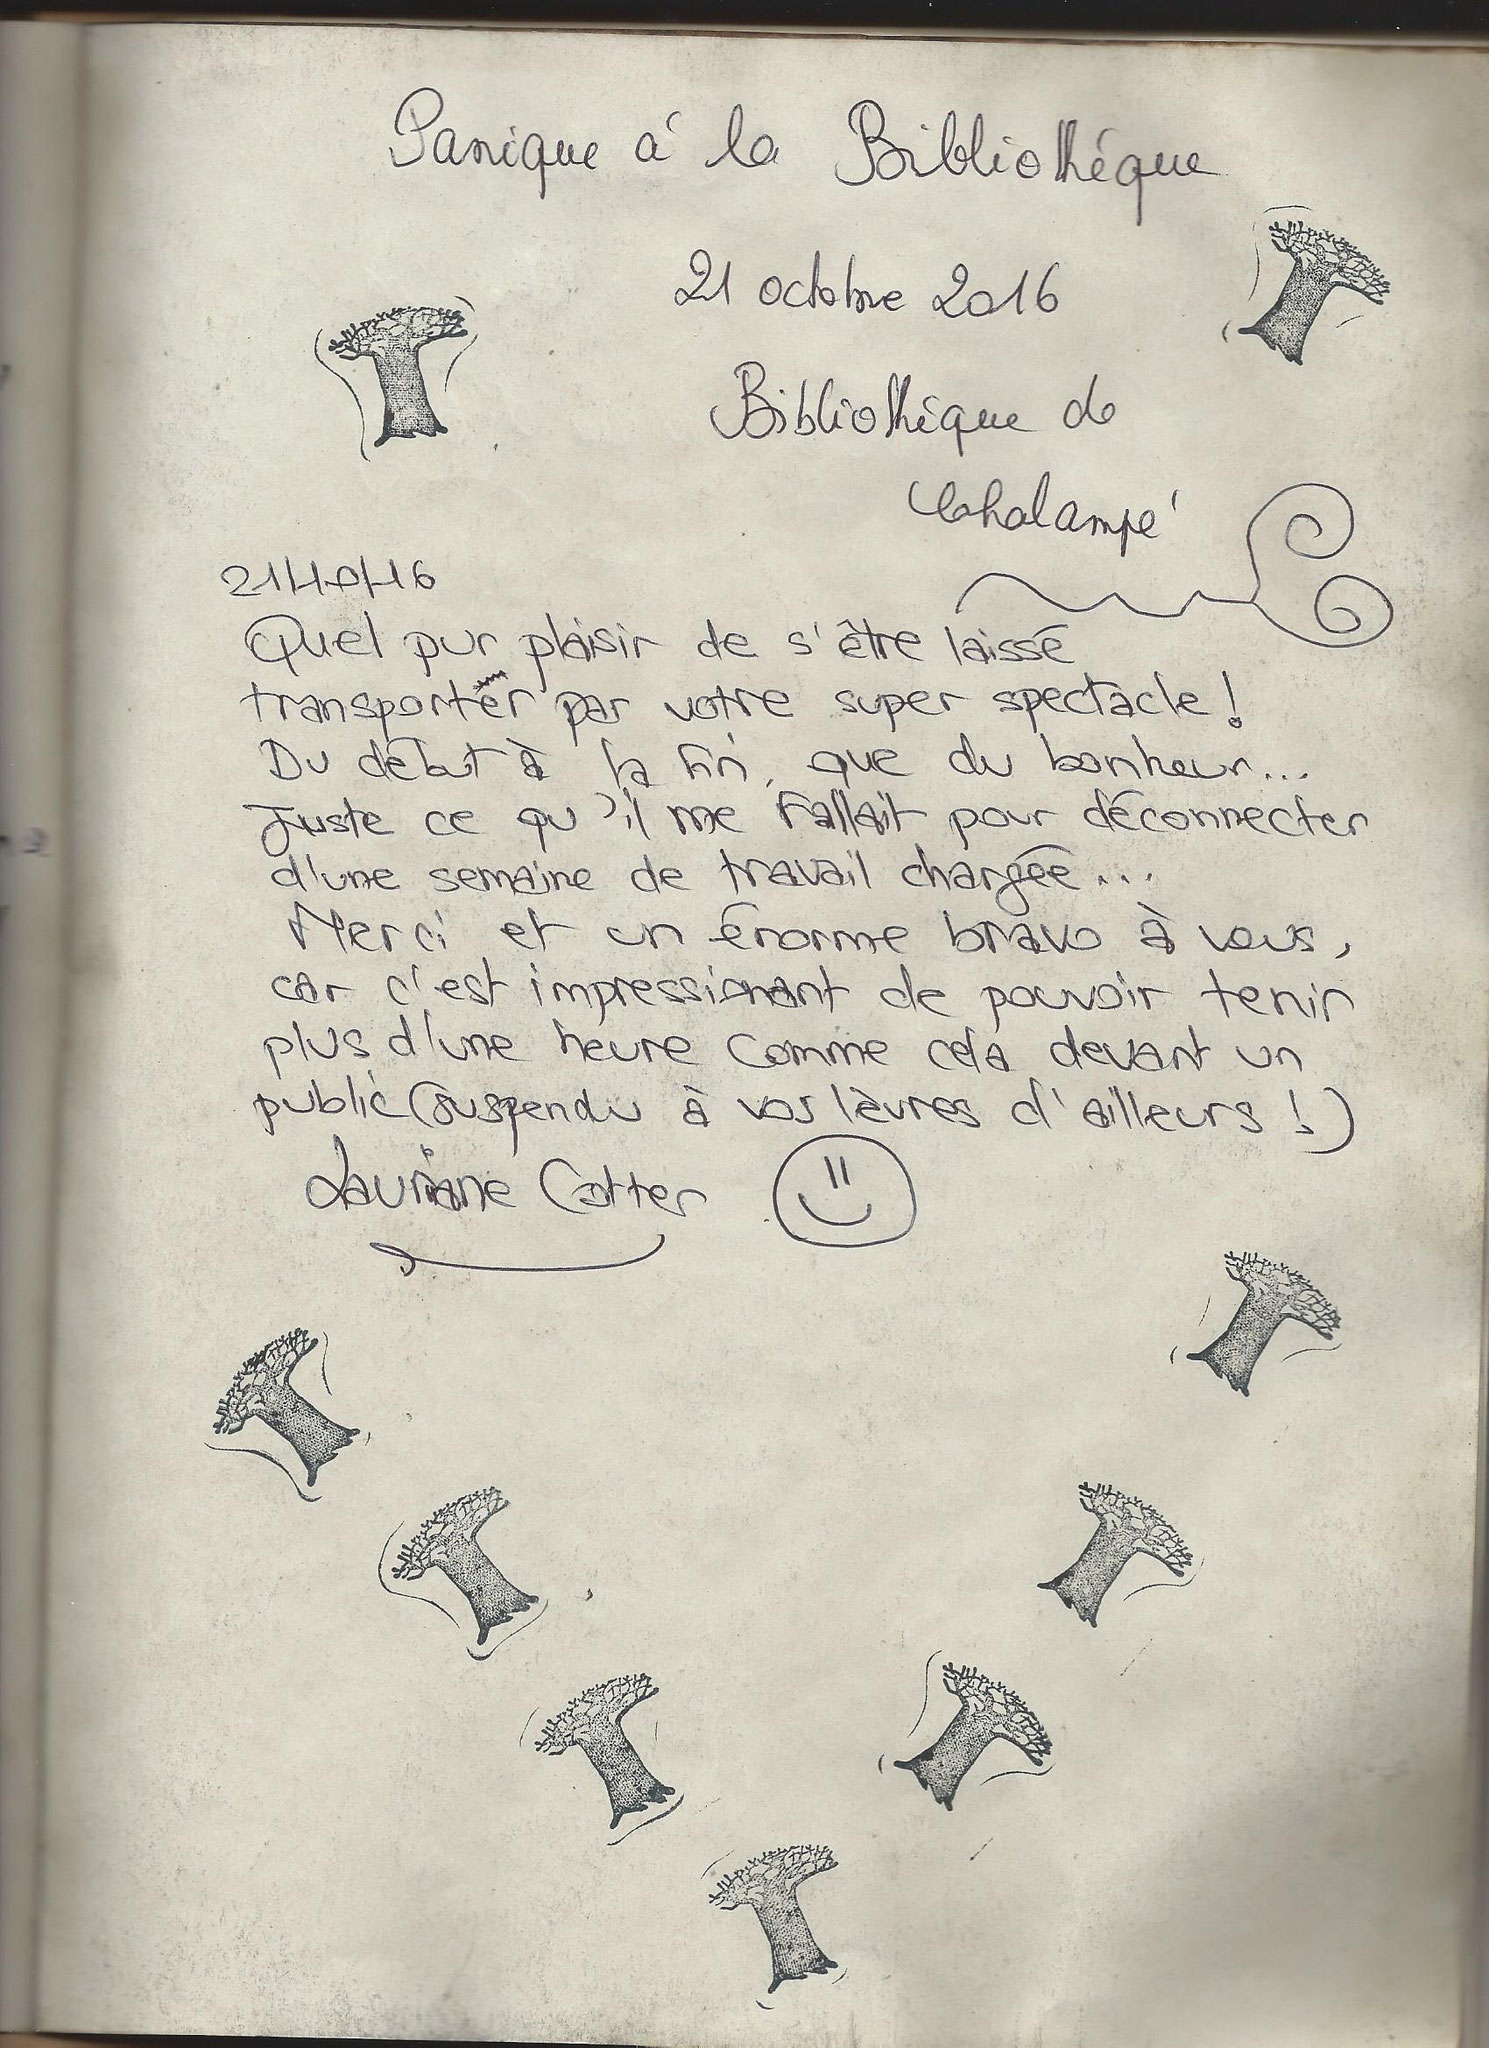 Panique á la Bibliothéque
21 octobre 2016
Bibliothéque de
Chalampé
21/10/16
Quel pur plaisir de s'être laissé
transporter par votre super spectacle !
Du début à la fin, que du bonheur...
Juste ce qu'il me fallait pour déconnecter
d'une semaine de travail chargée...
Merci et un énorme bravo à vous,
car c'est impressionnant de pouvoir tenir
plus d'une heure comme cela devant un
public (suspendu à vos lèvres d'ailleurs !)
Lauriane Cotter